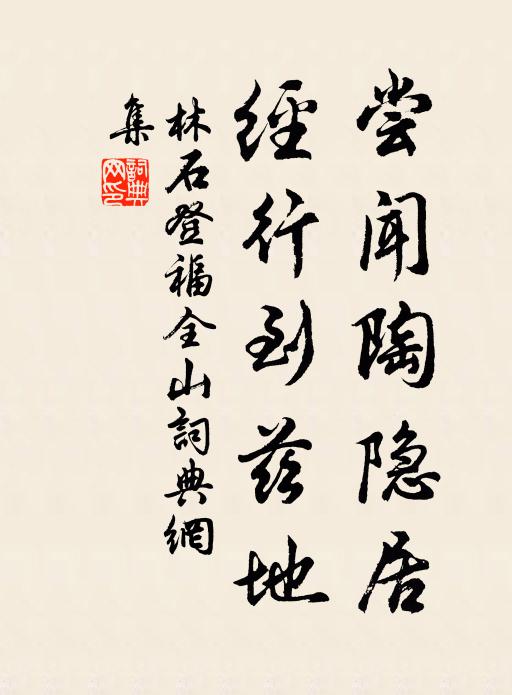 尝闻陶隐居
经行到兹地
林石登福全山詞典網
集
詞典網印